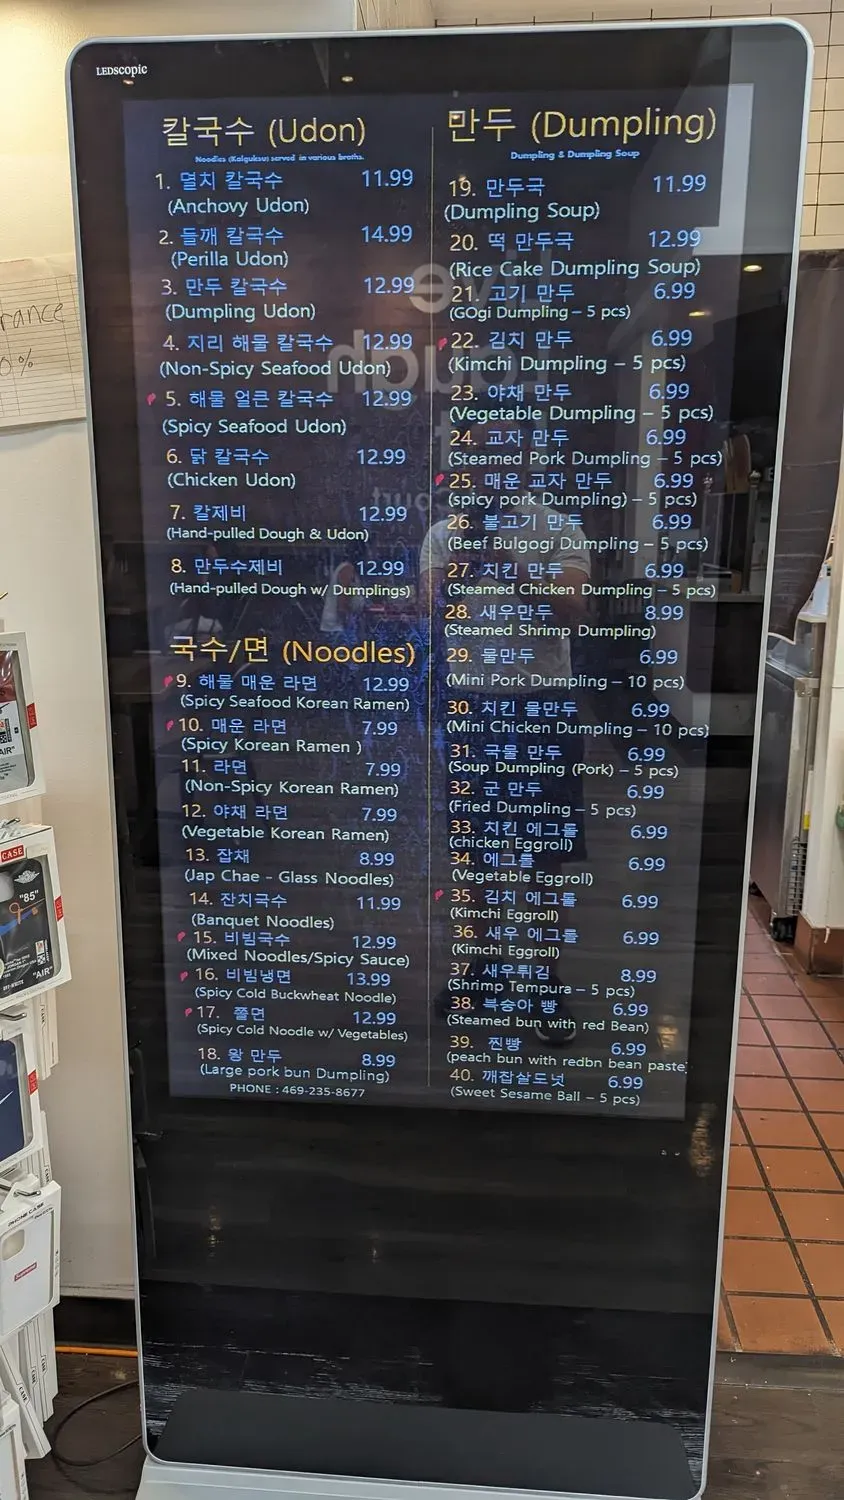 LEDscopic
칼국수 (Udon)
Noodles (Kalguksu) served in various broths.
1. 멸치 칼국수 11.99
(Anchovy Udon)
2. 들깨 칼국수 14.99
(Perilla Udon)
3. 만두 칼국수 12.99
(Dumpling Udon)
4. 지리 해물 칼국수 12.99
(Non-Spicy Seafood Udon)
5. 해물 얼큰 칼국수 12.99
(Spicy Seafood Udon)
6. 닭 칼국수 12.99
(Chicken Udon)
7. 칼제비 12.99
(Hand-pulled Dough & Udon)
8. 만두수제비 12.99
(Hand-pulled Dough w/ Dumplings)
국수/면 (Noodles)
9. 해물 매운 라면 12.99
(Spicy Seafood Korean Ramen)
10. 매운 라면 7.99
(Spicy Korean Ramen )
11. 라면 7.99
(Non-Spicy Korean Ramen)
12. 야채 라면 7.99
(Vegetable Korean Ramen)
13. 잡채 8.99
(Jap Chae - Glass Noodles)
14. 잔치국수 11.99
(Banquet Noodles)
15. 비빔국수 12.99
(Mixed Noodles/Spicy Sauce)
16. 비빔냉면 13.99
(Spicy Cold Buckwheat Noodle)
17. 쫄면 12.99
(Spicy Cold Noodle w/ Vegetables)
18. 왕 만두 8.99
(Large pork bun Dumpling)
PHONE : 469-235-8677
만두 (Dumpling)
Dumpling & Dumpling Soup
19. 만두국 11.99
(Dumpling Soup)
20. 떡 만두국 12.99
(Rice Cake Dumpling Soup)
21. 고기 만두 6.99
(GOgi Dumpling – 5 pcs)
22. 김치 만두 6.99
(Kimchi Dumpling – 5 pcs)
23. 야채 만두 6.99
(Vegetable Dumpling – 5 pcs)
24. 교자 만두 6.99
(Steamed Pork Dumpling – 5 pcs)
25. 매운 교자 만두 6.99
(spicy pork Dumpling) – 5 pcs)
26. 불고기 만두 6.99
(Beef Bulgogi Dumpling – 5 pcs)
27. 치킨 만두 6.99
(Steamed Chicken Dumpling – 5 pcs)
28. 새우만두 8.99
(Steamed Shrimp Dumpling)
29. 물만두 6.99
(Mini Pork Dumpling – 10 pcs)
30. 치킨 물만두 6.99
(Mini Chicken Dumpling – 10 pcs)
31. 국물 만두 6.99
(Soup Dumpling (Pork) – 5 pcs)
32. 군 만두 6.99
(Fried Dumpling – 5 pcs)
33. 치킨 에그롤 6.99
(chicken Eggroll)
34. 에그롤 6.99
(Vegetable Eggroll)
35. 김치 에그롤 6.99
(Kimchi Eggroll)
36. 새우 에그롤 6.99
(Kimchi Eggroll)
37. 새우튀김 8.99
(Shrimp Tempura – 5 pcs)
38. 복숭아 빵
(Steamed bun with red Bean)
39. 찐빵 6.99
(peach bun with redbn bean paste)
40. 깨찹살도넛 6.99
(Sweet Sesame Ball – 5 pcs)
rance
0%
CASE
"85"
"AIR"
PHONE CASE
Supreme
CASE